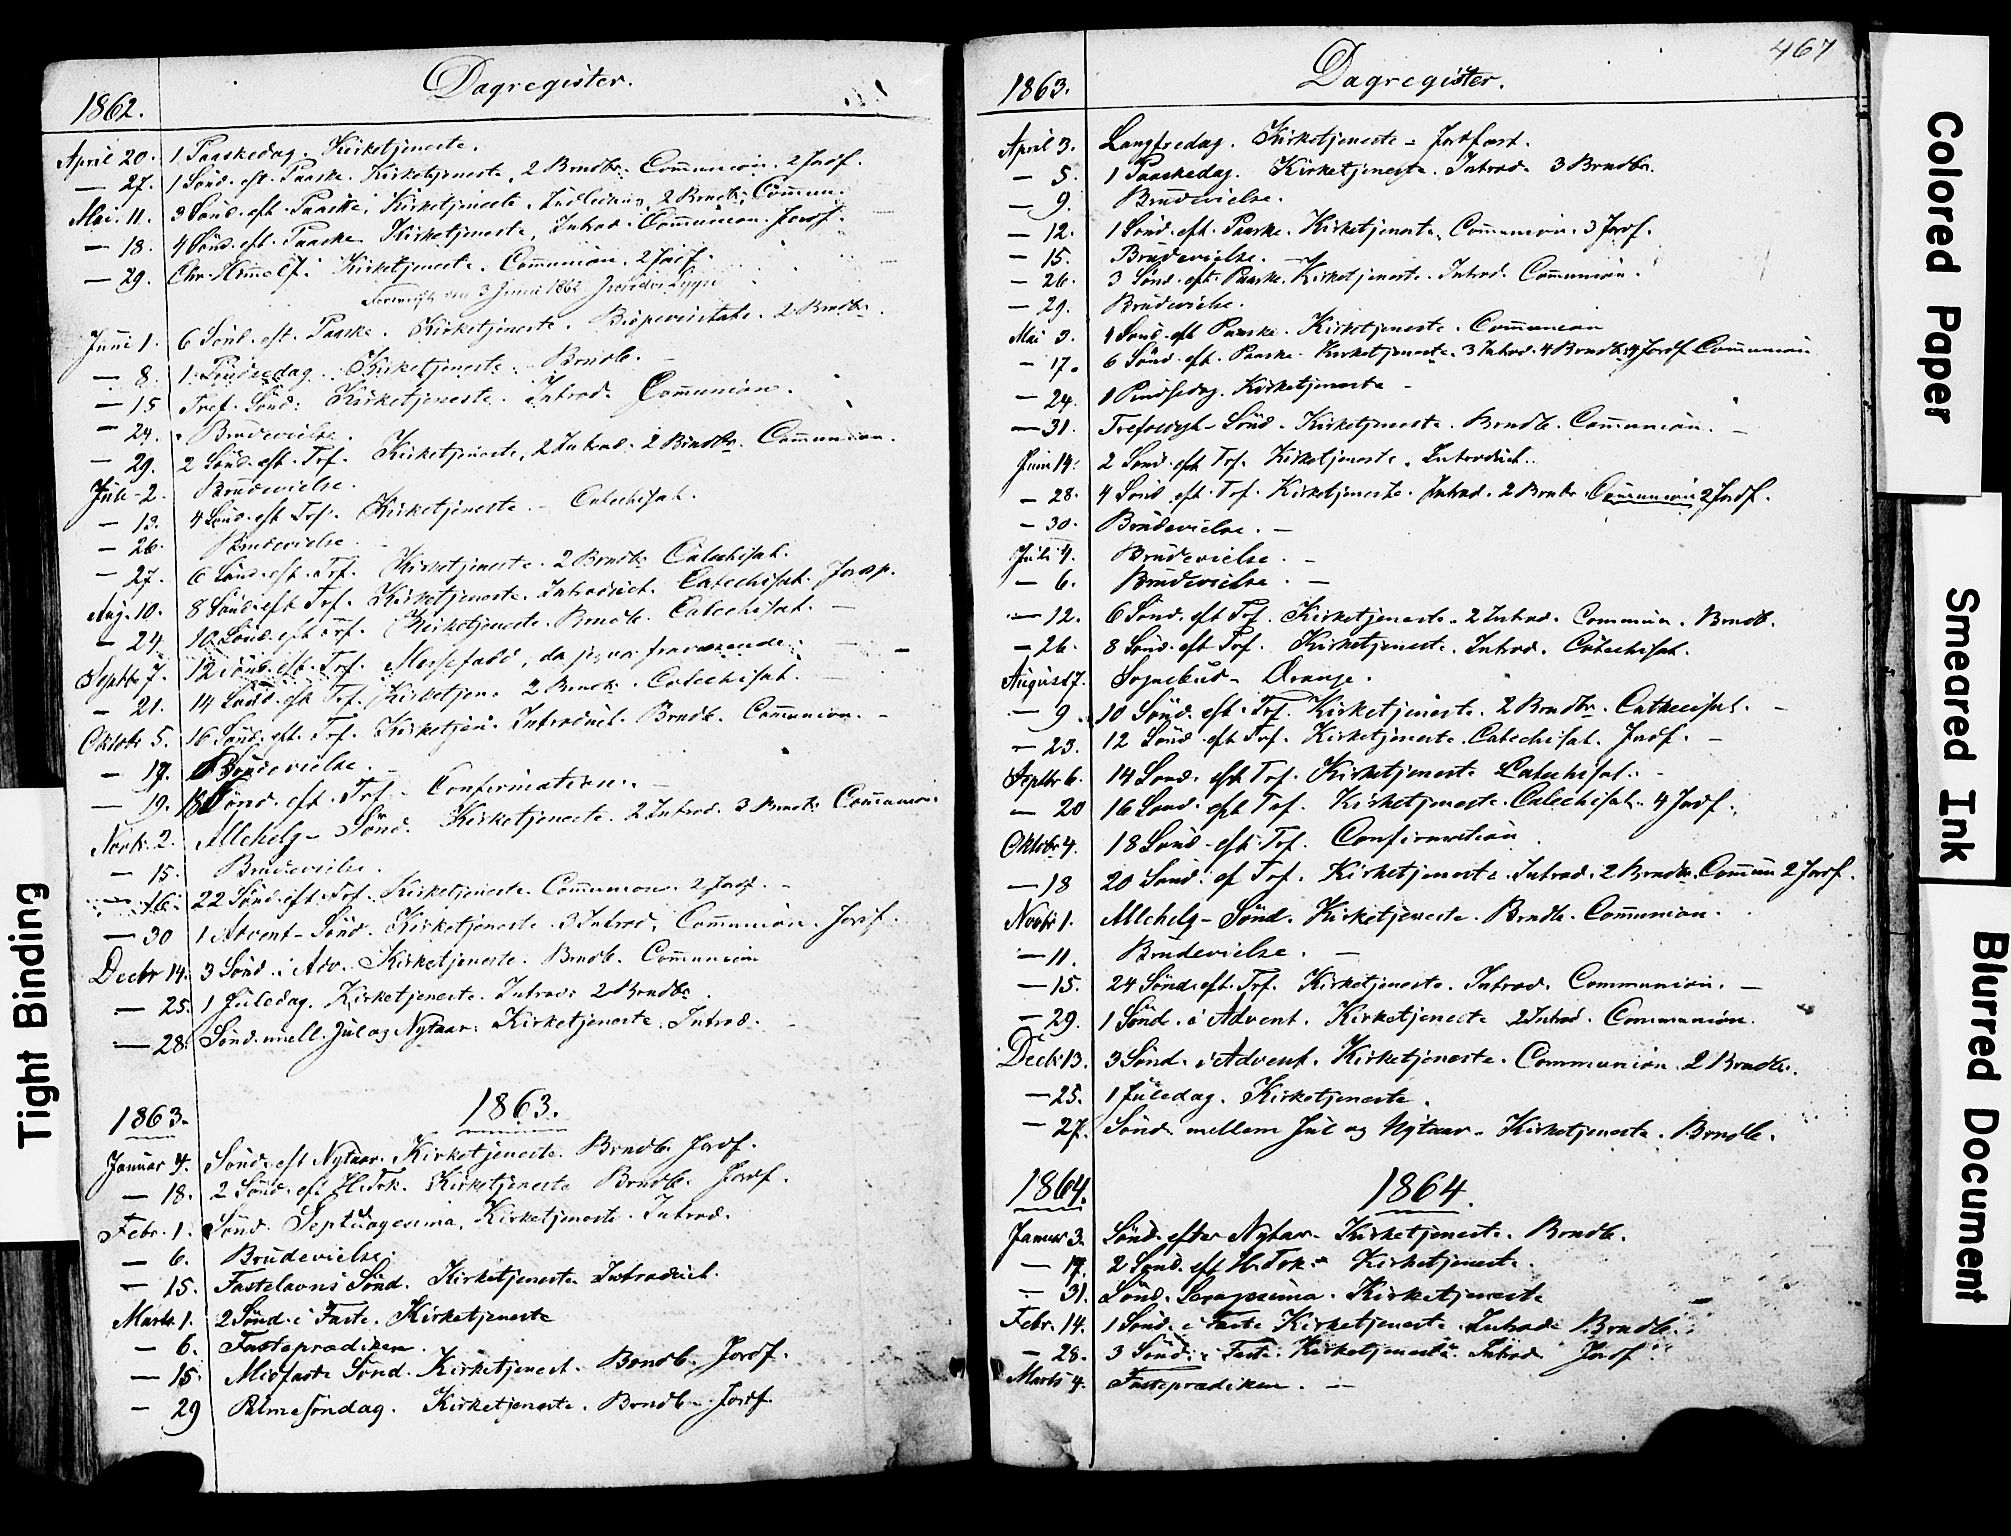 Dagregister.
1862.
April 20. 1 Paaskedag. Kirketjeneste.
— 27. 1 Sönd. eft. Paaske. Kirketjeneste, 2 Brndb. Communion. 2 Jordf.
Mai. 11. 3 Sönd. eft. Paaske. Kirketjeneste. 2 Brndb. Commun.
— 18. 4 Sönd. eft. Paaske. Kirketjeneste, Introd. Communion. Jordf.
— 29. Chr. Himmelf. Kirketjeneste. Communion. 2 Jordf.
3 Juni 1862
Juni 1. 6 Sönd. eft. Paaske. Kirketjeneste. Bispevisitats. 2 Brndb.
— 8. 1 Pindsedag. Kirketjeneste. Brndb.
— 15 Tref. Sönd. Kirketjeneste. Introd. Communion.
— 24. Brudevielse.
— 29. 2 Sönd. eft. Tref. Kirketjeneste, 2 Introd. 2 Brndbr. Communion.
Juli 2. Brudevielse.
— 13. 4 Sönd. eft Tref. Kirketjeneste. Catechisat.
— 26. Brudevielse.
— 27. 6 Sönd. eft. Tref. Kirketjeneste. 2 Brndb. Catechisat.
Aug. 10. 8 Sönd. eft Tref. Kirketjeneste. Introduct. Catechisat. Jordp.
— 24. 10 Sönd. eft Tref. Kirketjeneste. Brndb. Catechisat.
Septbr 7. 12 Sönd. eft. Tref. Messefald, da jeg var fraværende.
— 21. 14 Sönd. eft Tref. Kirketjen. 2 Brndb. Catechisat.
Oktobr 5. 16 Sönd. eft. Tref. Kirketjen. Introduct. Brndb. Communion.
— 17. Brudevielse.
— 19. 18 Sönd. eft. Tref. Confirmation.
Novbr. 2. Allehelg- Sönd. Kirketjeneste. 2 Introd. 3 Brndb. Communion.
— 15. Brudevielse.
— 16. 22 Sönd. eft. Tref. Kirketjeneste. Communion. 2 Jordf.
— 30 1 Advent-Sönd. Kirketjeneste. 3 Introd. Communion. Jordf.
Decbr 14. 3 Sönd. i Adv. Kirketjeneste. Brndb. Communion
— 25. 1 Juledag. Kirketjeneste. Introd. 2 Brndbr.
— 28. Sönd. mell. Jul og Nytaar. Kirketjeneste. Introd.
1863. 1863.
Januar 4. Sönd. eft Nytaar. Kirketjeneste. Brndb. Jordf.
— 18. 2 Sönd. eft H. Trek. Kirketjeneste Brndb. Jordf.
Febr. 1. Sönd. Septuagesima. Kirketjeneste. Introd.
— 6. Brudevielse.
— 15. Fastelavns Sönd. Kirketjeneste Introduct.
Marts. 1. 2 Sönd. i Faste. Kirketjeneste
— 6. Fasteprædiken.
— 15. Midfaste Sönd. Kirketjenest. Brndb. Jordf.
— 29 Palmesöndag. Kirketjeneste. Brndb. Jordf.
467
Dagregister.
1863.
April 3. Langfredag. Kirketjeneste - Jordfæst.
— 5. 1 Paaskedag. Kirketjeneste. Introd. 3 Brndbr.
— 9. Brudevielse.
— 12. 1 Sönd. eft. Paaske. Kirketjeneste. Communion. 3 Jordf.
— 15. Brudevielse.
— 26. 3 Sönd. eft. Paaske. Kirketjenest. Introd. Communion.
— 29. Brudevielse.
Mai 3. 4 Sönd. eft Paaske. Kirketjeneste. Communion
— 17. 6 Sönd. eft. Paaske. Kirketjeneste. 3 Introd. 4 Brndb. 4 Jordf Communion
— 24. 1 Pindsedag. Kirketjeneste -
— 31. Trefoldigh- Sönd. Kirketjeneste. Brndb. Communion.
Juni 14. 2 Sönd. eft Tref. Kirketjeneste. Introduct.
— 28. 4 Sönd. eft. Tref. Kirketjeneste. Introd. 2 Brndbr. Communion 2 Jordf.
— 30. Brudevielse.
Juli 4. Brudevielse.
— 6. Brudevielse.
— 12. 6 Sönd. eft Tref. Kirketjeneste. 2 Introd. Communion. Brndb.
— 26. 8 Sönd. eft Tref. Kirketjenest. Introd. Catechisat.
August 7. Sognebud-
— 9. 10 Sönd. eft. Tref. Kirketjeneste. 2 Brndbr. Cathechisat.
— 23. 12 Sönd eft Tref. Kirketjeneste. Catechisat. Jordf.
Septbr 6. 14 Sönd. eft Tref. Kirketjeneste Catechisat.
— 20 16 Sönd. eft Tref. Kirketjeneste. Catechisat. 4 Jordf.
Oktobr 4. 18 Sönd. eft. Tref. Confirmation
— 18 20 Sönd. ef Tref. Kirketjeneste. Introd. 2 Brndb. Commun 2 Jordf.
Novbr 1. Allehelg- Sönd. Kirketjeneste. Brndb. Communion.
— 11. Brudevielse.
— 15. 24 Sönd. eft. Tref. Kirketjeneste. Introd. Communion.
— 29. 1 Sönd. i Advent. Kirketjeneste 2 Introd. Communion.
Decb. 13. 3 Sönd. i Advent. Kirketjeneste. Communion. 2 Brndb.
— 25. 1 Juledag. Kirketjeneste.
— 27. Sönd. mellem Jul og Nytaar. Kirketjeneste. Brndb.
1864. 1864.
Januar 3. Sönd. efter Nytaar. Kirketjeneste. Brndb.
— 17. 2 Sönd. eft H. Trek. Kirketjeneste.
— 31. Sönd. Sexagesima. Kirketjeneste
Febr. 14. 1 Sönd. i Faste Kirketjeneste. Introd. Brndb.
— 28. 3 Sönd. i Faste. Kirketjeneste. Introd Jordf.
Marts 4. Fasteprædiken.
Tight Binding
Colored Paper
Smeared Ink
Blurred Document